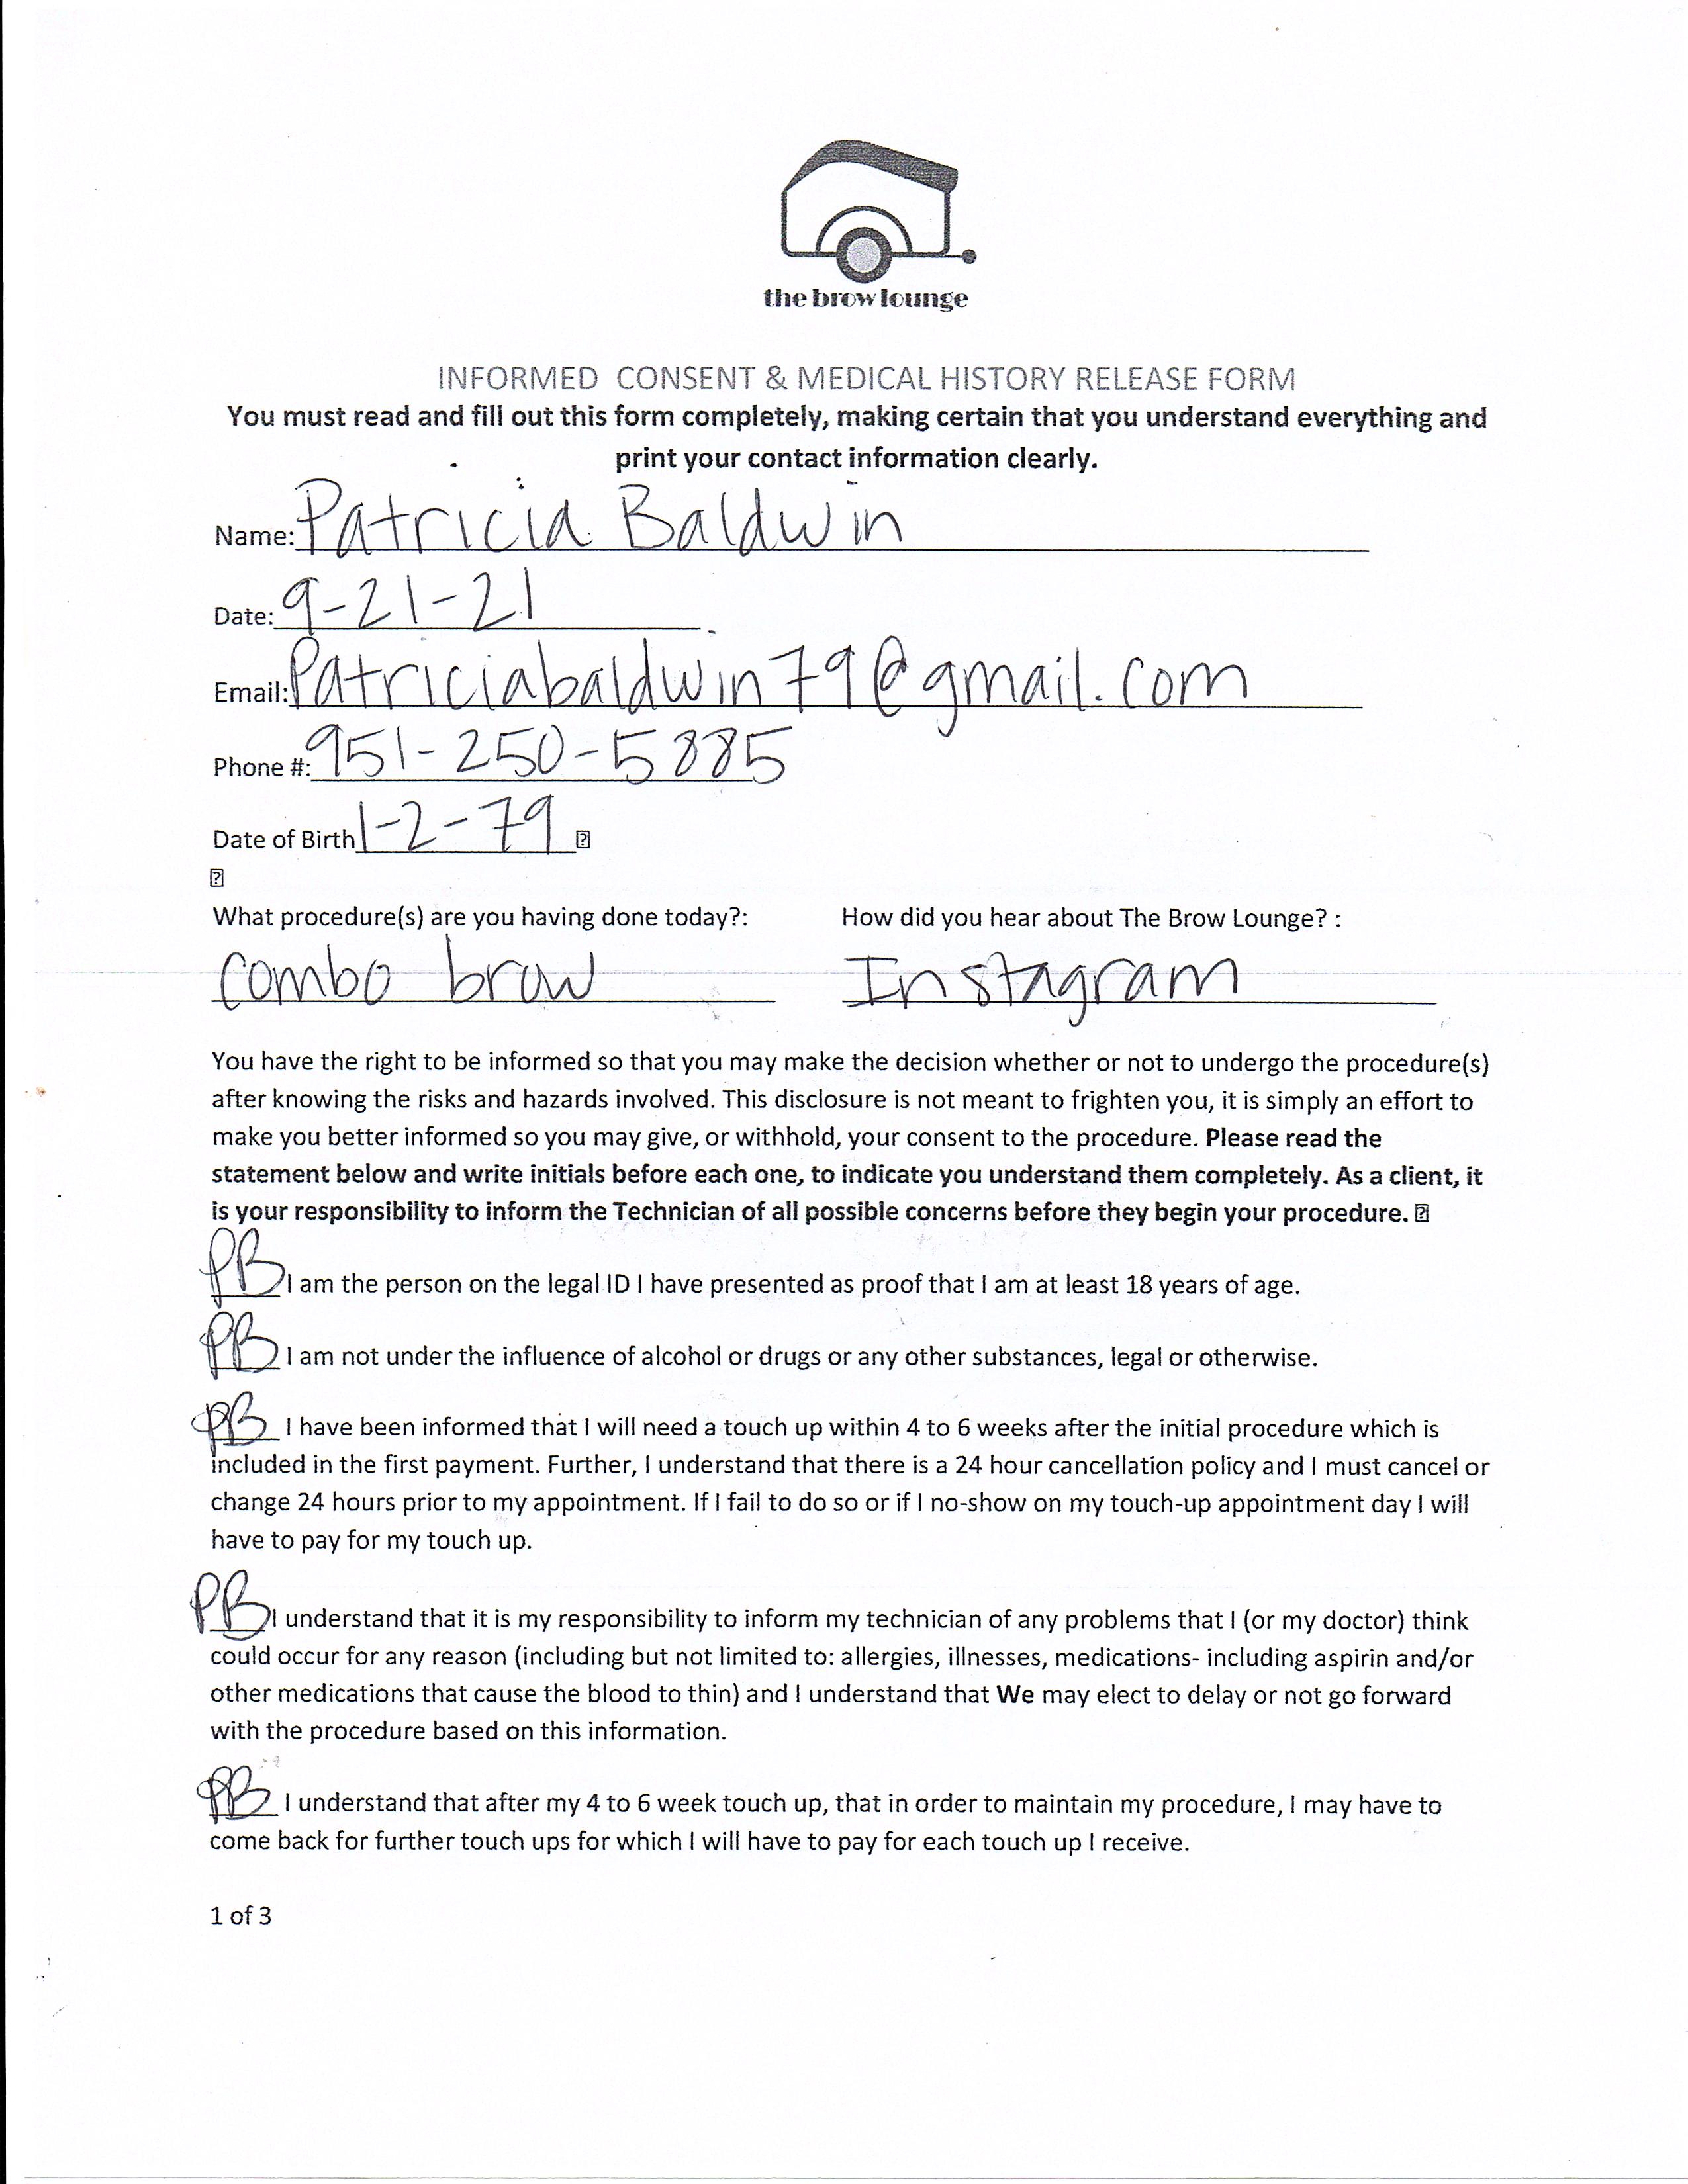 the brow lounge
INFORMED CONSENT & MEDICAL HISTORY RELEASE FORM
You must read and fill out this form completely, making certain that you understand everything and
print your contact information clearly.
Name: Patricia Baldwin
Date: 9-21-21
Email: Patriciabaldwin79@gmail.com
Phone #: 951-250-5885
Date of Birth 1-2-79 ?
?
What procedure(s) are you having done today?: How did you hear about The Brow Lounge? :
Combo brow Instagram
You have the right to be informed so that you may make the decision whether or not to undergo the procedure(s)
after knowing the risks and hazards involved. This disclosure is not meant to frighten you, it is simply an effort to
make you better informed so you may give, or withhold, your consent to the procedure. Please read the
statement below and write initials before each one, to indicate you understand them completely. As a client, it
is your responsibility to inform the Technician of all possible concerns before they begin your procedure. ?
PB I am the person on the legal ID I have presented as proof that I am at least 18 years of age.
PB I am not under the influence of alcohol or drugs or any other substances, legal or otherwise.
PB I have been informed that I will need a touch up within 4 to 6 weeks after the initial procedure which is
included in the first payment. Further, I understand that there is a 24 hour cancellation policy and I must cancel or
change 24 hours prior to my appointment. If I fail to do so or if I no-show on my touch-up appointment day I will
have to pay for my touch up.
PB I understand that it is my responsibility to inform my technician of any problems that I (or my doctor) think
could occur for any reason (including but not limited to: allergies, illnesses, medications- including aspirin and/or
other medications that cause the blood to thin) and I understand that We may elect to delay or not go forward
with the procedure based on this information.
PB I understand that after my 4 to 6 week touch up, that in order to maintain my procedure, I may have to
come back for further touch ups for which I will have to pay for each touch up I receive.
1 of 3